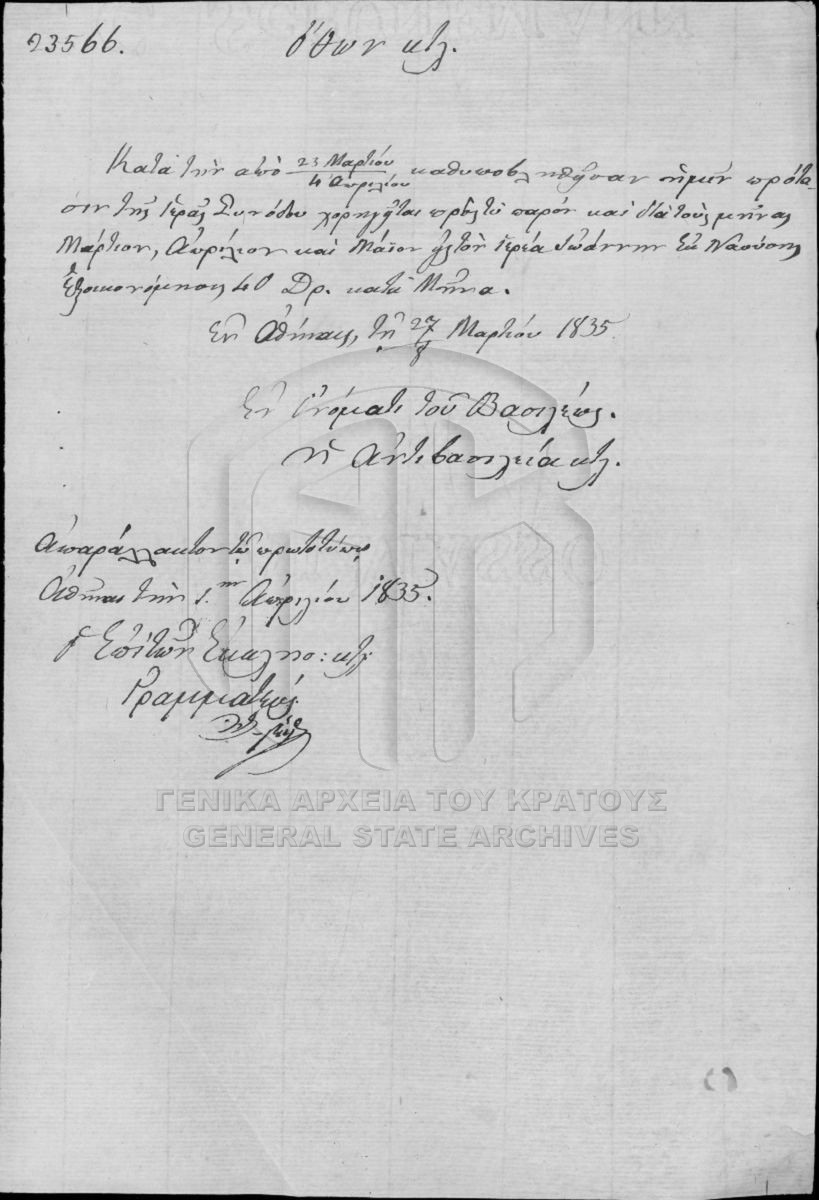 23566. Ὄθων κτλ.
Κατὰ τὴν ἀπὸ 23 Μαρτίου / 4 Ἀπριλίου καθυποβληθεῖσαν ἡμῖν πρότα-
σιν τῆς Ἱερᾶς Συνόδου χορηγεῖται πρὸς τὸ παρὸν καὶ διὰ τοὺς μῆνας
Μάρτιον, Ἀπρίλιον καὶ Μάϊον εἰς τὸν ἱερέα Ἰωάννην ἐκ Ναούσης
ἐξοικονόμησις 40 Δρ. κατὰ Μῆνα.
Ἐν Ἀθήναις, τῇ 27/8 Μαρτίου 1835.
Ἐν Ὀνόματι τοῦ Βασιλέως.
ἡ Ἀντιβασιλεία κτλ.
Ἀπαράλλακτον τῷ πρωτοτύπῳ
Ἀθῆναι τὴν 1.ην Ἀπριλίου 1835.
Ὁ ἐπὶ τῶν Ἐκκλησ: κτλ
Γραμματεὺς
ΓΕΝΙΚΑ ΑΡΧΕΙΑ ΤΟΥ ΚΡΑΤΟΥΣ
GENERAL STATE ARCHIVES